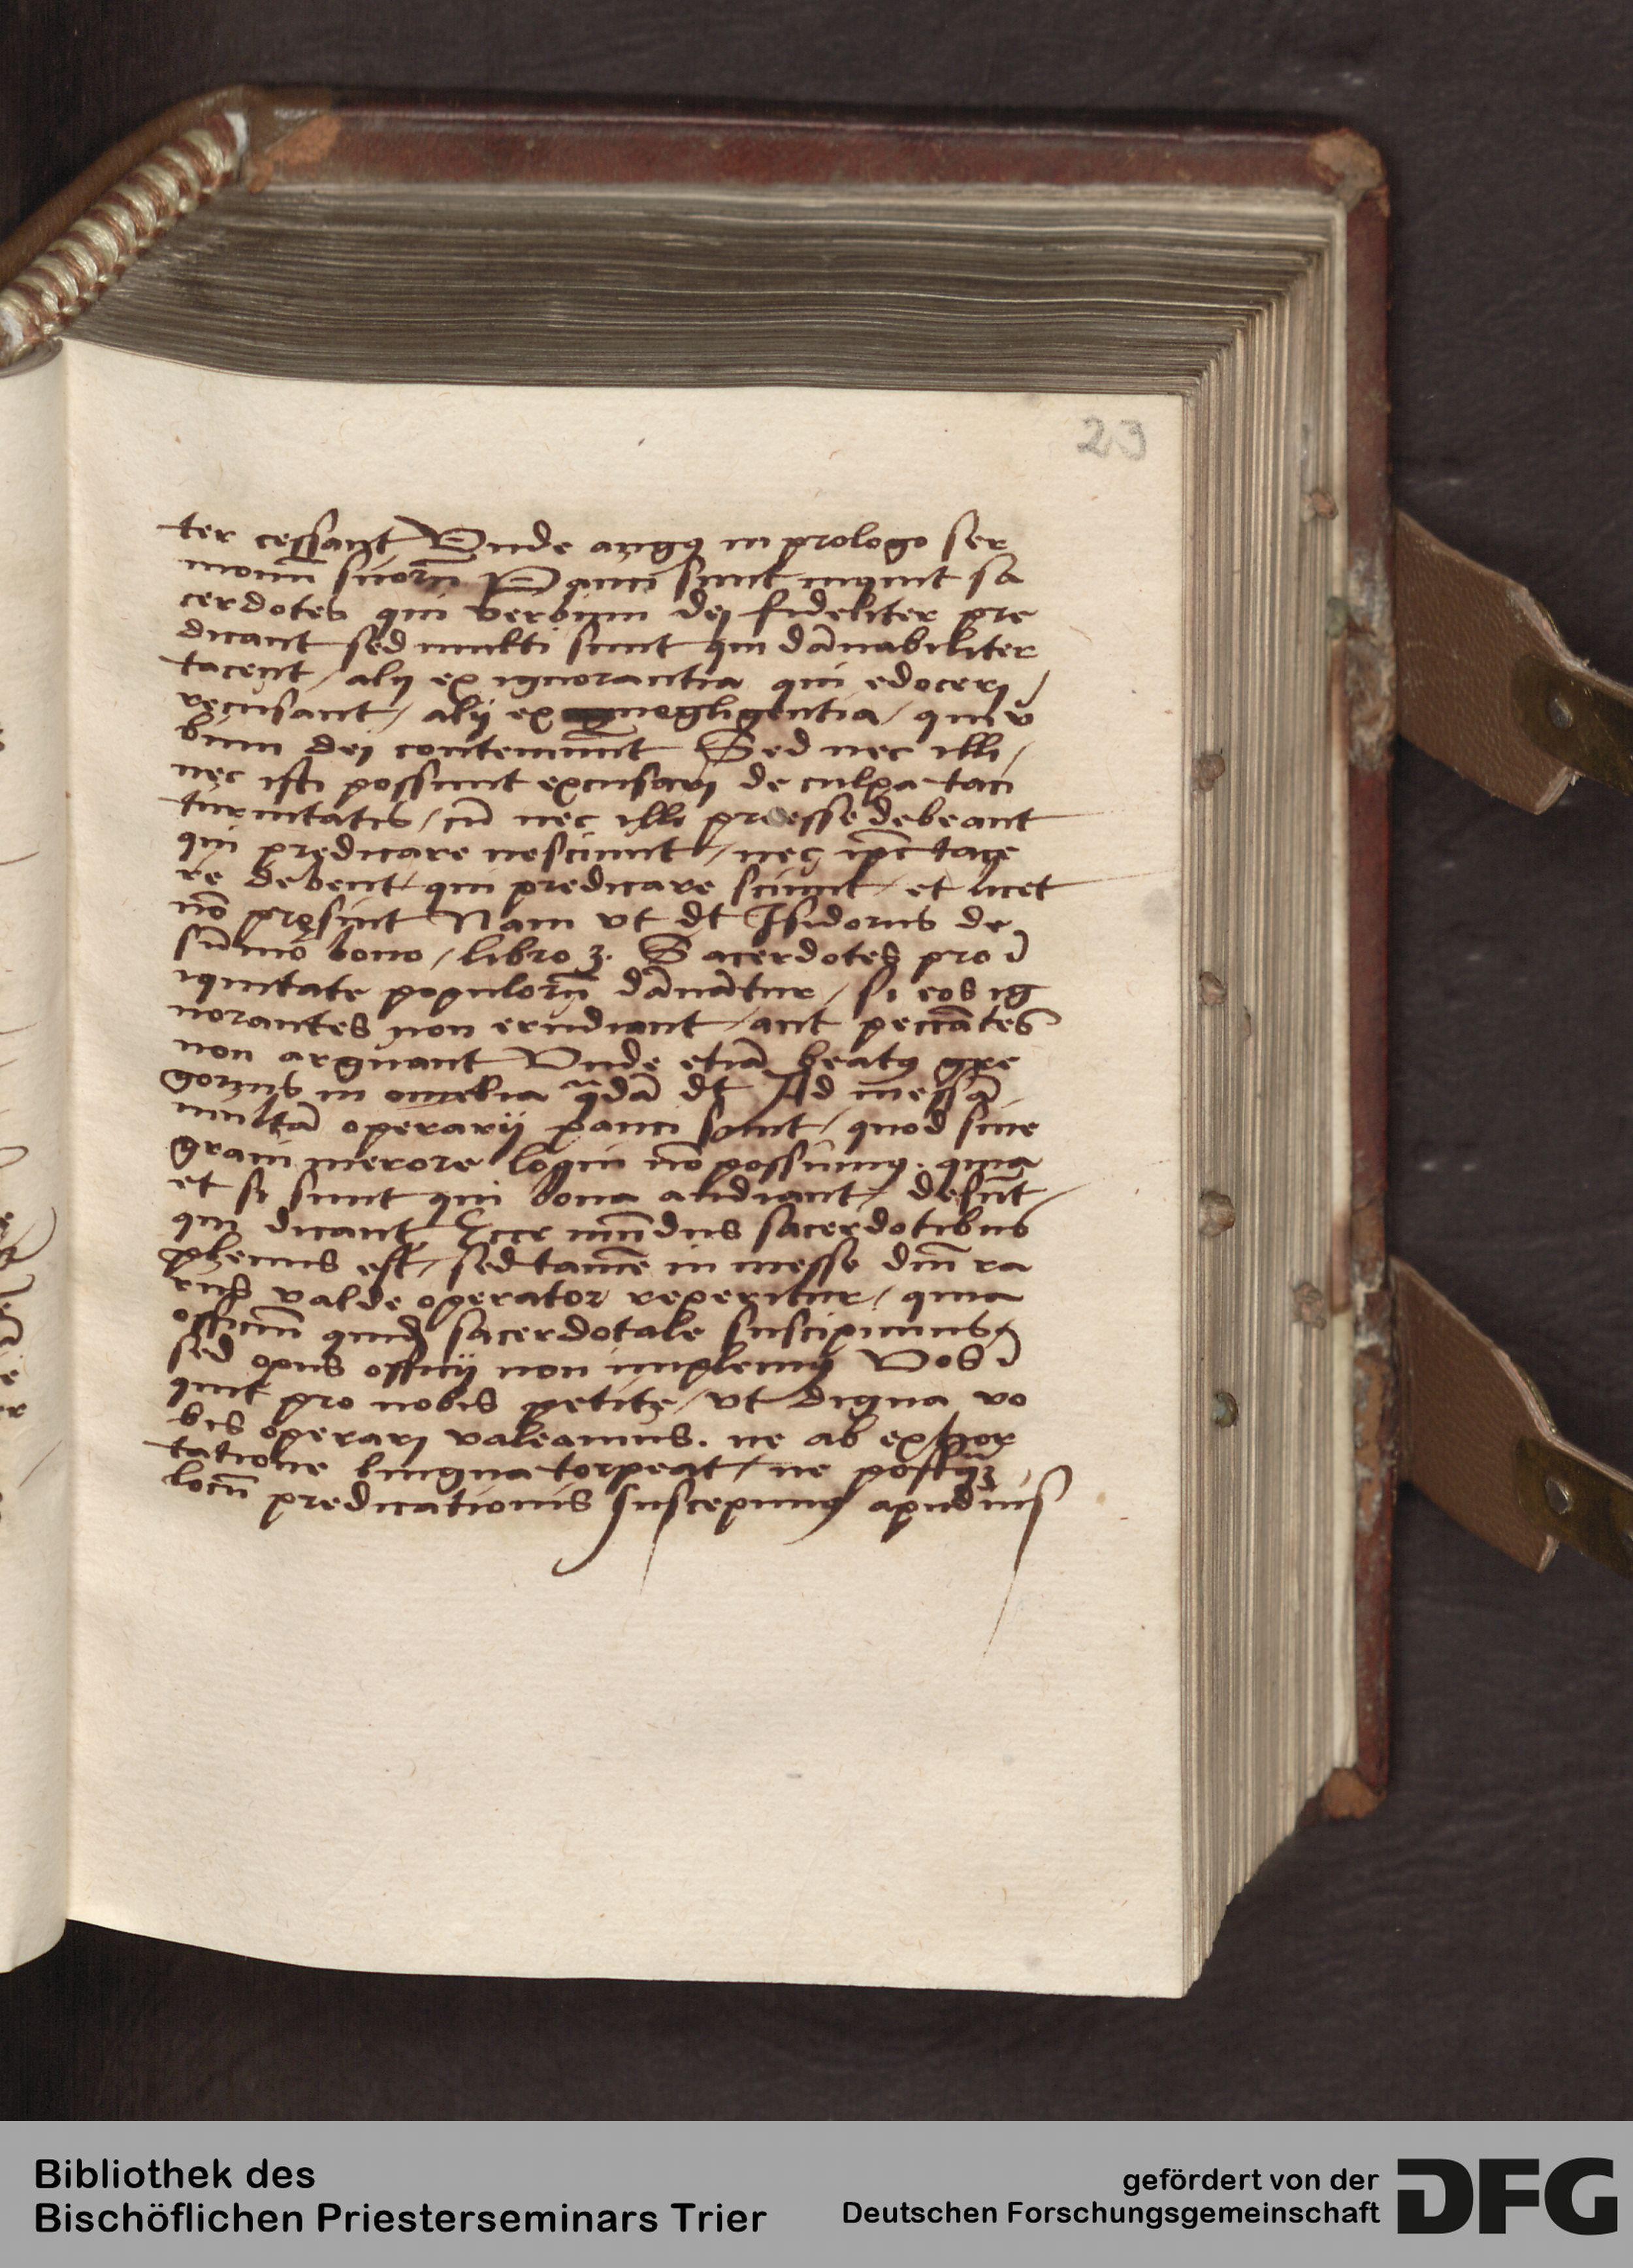 23
ter cessant Vnde augꝰ in prologo ser
monũ suorũ Pauci sunt inquit sa
cerdotes qui verbum dej fideliter pre
dicant sed multi sunt qui dãnabiliter
tacent / alij ex ignorantia qui edocerj /
recusant / alij ex negligentia / qui v̄
bum dej contemnũt Sed nec illi /
nec isti possunt excusarj de culpa taci
turnitatis / cũ nec illi preesse debeant
qui predicare nesciunt / nec tace
re debent / qui predicare sciunt / et licet
nõ pręsint Nam vt dt̄ Isidorus de
sũmo bono / libro 3. Sacerdotes pro ĩ
iquitate populorũ dãnãtur / si eos ig
norantes non erudiant / aut peccãtes
non arguant Vnde etiã beatꝰ gre
gorius in omelia q̃dã dt̄ Ad messã
multã operarij pauci sunt / quod sine
graui merore loqui nõ possumꝰ. quia
et si sunt qui bona audiant / desũt /
qui dicant Ecce mũdus sacerdotibus
plenus est / sed tamẽ in messe dm̃ ra
rus valde operator reperitur / quia
officiũ quidẽ sacerdotale suscipimus /
sed opus officij non implemꝰ Vos ĩ
quit pro nobis petite / vt digna vo
bis operarj valeamus. ne ab exhor
tatione lingua torpeat / ne postq̃ȝ
locũ predicationis suscepimꝰ apud ius
Bibliothek des
Bischöflichen Priesterseminars Trier
gefördert von der
Deutschen Forschungsgemeinschaft
DFG